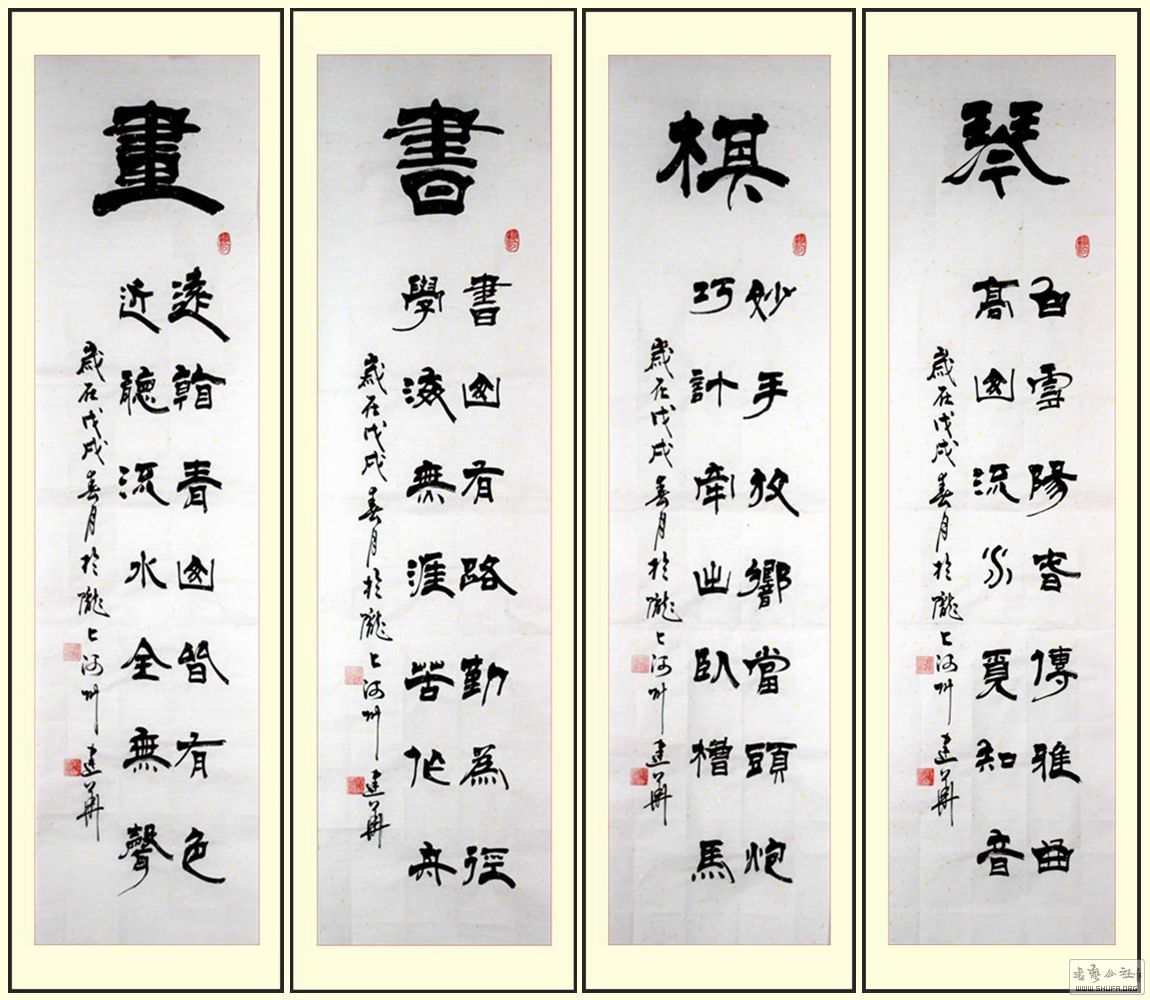 琴
白雪陽春傳雅曲
高山流水覓知音
歲在戊戌春月於隴上河州 建華
棋
妙手放響當頭炮
巧計牽出臥槽馬
歲在戊戌春月於隴上河州 建華
書
書山有路勤為徑
學海無涯苦作舟
歲在戊戌春月於隴上河州 建華
畫
遠看青山皆有色
近聽流水全無聲
歲在戊戌春月於隴上河州 建華
WWW.SHUFA.ORG